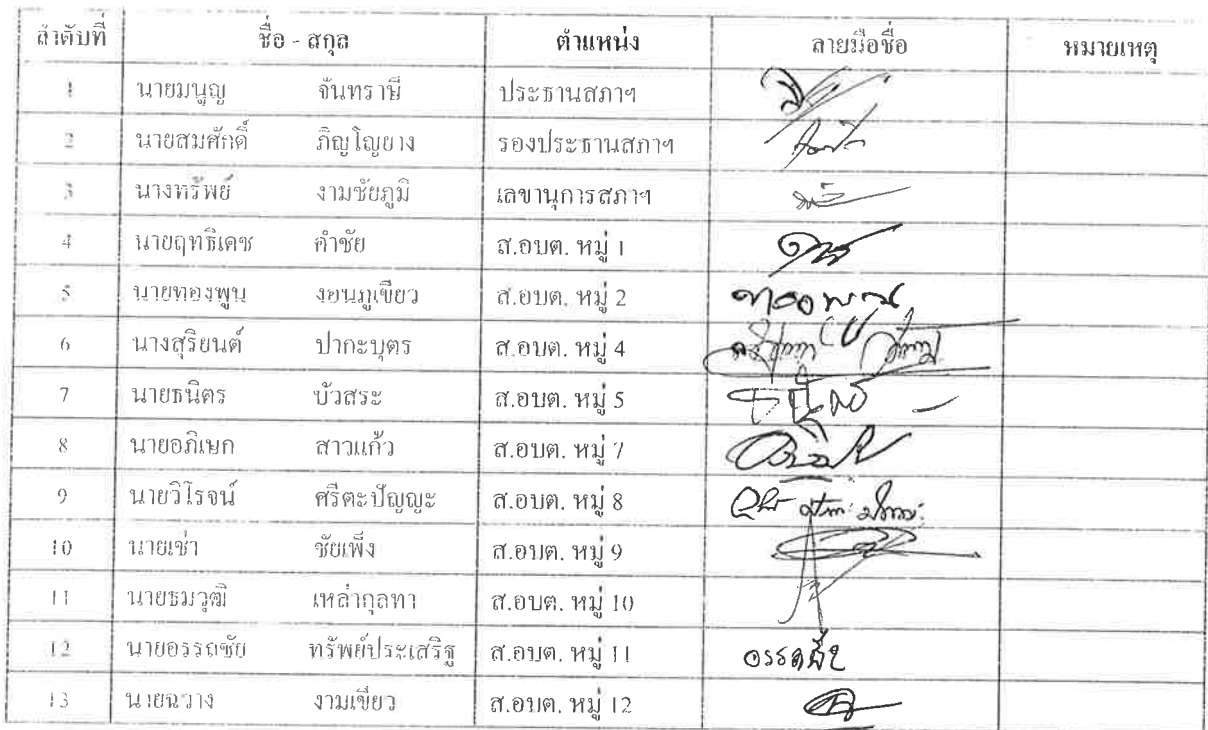 ลำดับที่ ชื่อ - สกุล ตำแหน่ง ลายมือชื่อ หมายเหตุ
1 นายมนูญ จันทราษี ประธานสภาฯ
2 นายสมศักดิ์ ภิญโญยาง รองประธานสภาฯ
3 นางทรัพย์ งามชัยภูมิ เลขานุการสภาฯ
4 นายฤทธิเดช คำชัย ส.อบต. หมู่ 1
5 นายทองพูน งอนภูเขียว ส.อบต. หมู่ 2
6 นางสุริยนต์ ปากะบุตร ส.อบต. หมู่ 4
7 นายธนิตร บัวสระ ส.อบต. หมู่ 5
8 นายอภิเษก สาวแก้ว ส.อบต. หมู่ 7
9 นายวิโรจน์ ศรีตะปัญญะ ส.อบต. หมู่ 8
10 นายเช่า ชัยเพ็ง ส.อบต. หมู่ 9
11 นายธมวุฒิ เหล่ากุลทา ส.อบต. หมู่ 10
12 นายอรรถชัย ทรัพย์ประเสริฐ ส.อบต. หมู่ 11
13 นายฉวาง งามเขียว ส.อบต. หมู่ 12